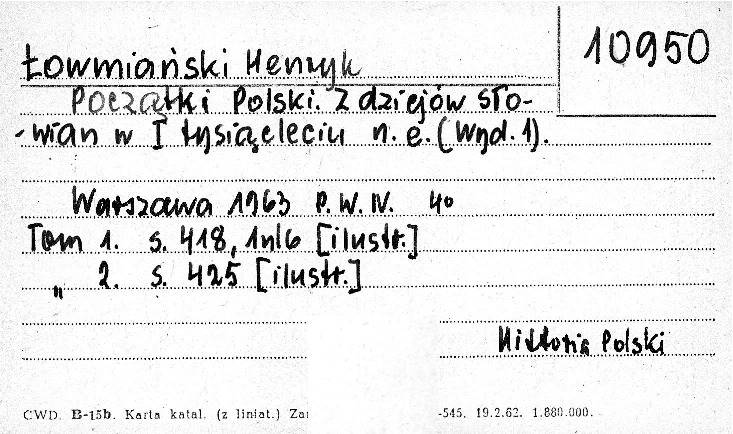 10950
Łowmiański Henryk
Początki Polski. Z dziejów Sło-
-wian w I tysiącleciu n. e. (Wyd. 1).
Warszawa 1963 P. W. N. 4o
Tom 1. s. 418, 1nlb [ilustr.]
„ 2. s. 425 [ilustr.]
Historia Polski
CWD. B-15b. Karta katal. (z liniat.) Zai -545. 19.2.62. 1.880.000.